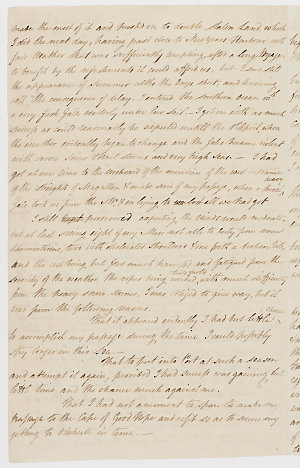 made the most of it and pushed on to double Staten Land, which
I did the next day, having past close to New Years Harbour with
fair Weather that was sufficiently tempting, after a long Voyage
to benefit by the refreshments it could afford us, but I saw still
the appearance of Summer altho the Days short, and knowing
all the consequence of delay I entered the southern Ocean with
a very fresh Gale westerly under low Sail. I got on with as much
success as could reasonably be expected untill the 1st April when
the weather evidently began to change and the Gales became violent
with severe Snow & hail storms and very high Seas. — I had
got at one time to the westward of the meridian of the west entrance
of the Streights of Magellan & made sure of my passage, when a severe
Gale took us from the
I still persevered expecting the winds would moderate
but at last seeing eight of my Men not able to duty from severe
haemorrhoids, two with dislocated shoulders & one with a broken rib,
and the rest thing but hearty and fatigued from the
severity of the weather, the ropes being worked with much difficulty
from the heavy snow storms, I was obliged to give way, but it
was from the following reasons.
That it appeared evidently I had but little chance
to accomplish my passage during the time I could possibly
stay longer in this Sea. —
That to put into Port at such a season
and attempt it again, provided I had success was gaining but
little time and the chance much against me.
That I had not a moment to spare to make my
passage to the Cape of Good Hope and refit so as to secure my
getting to Otaheite in time —